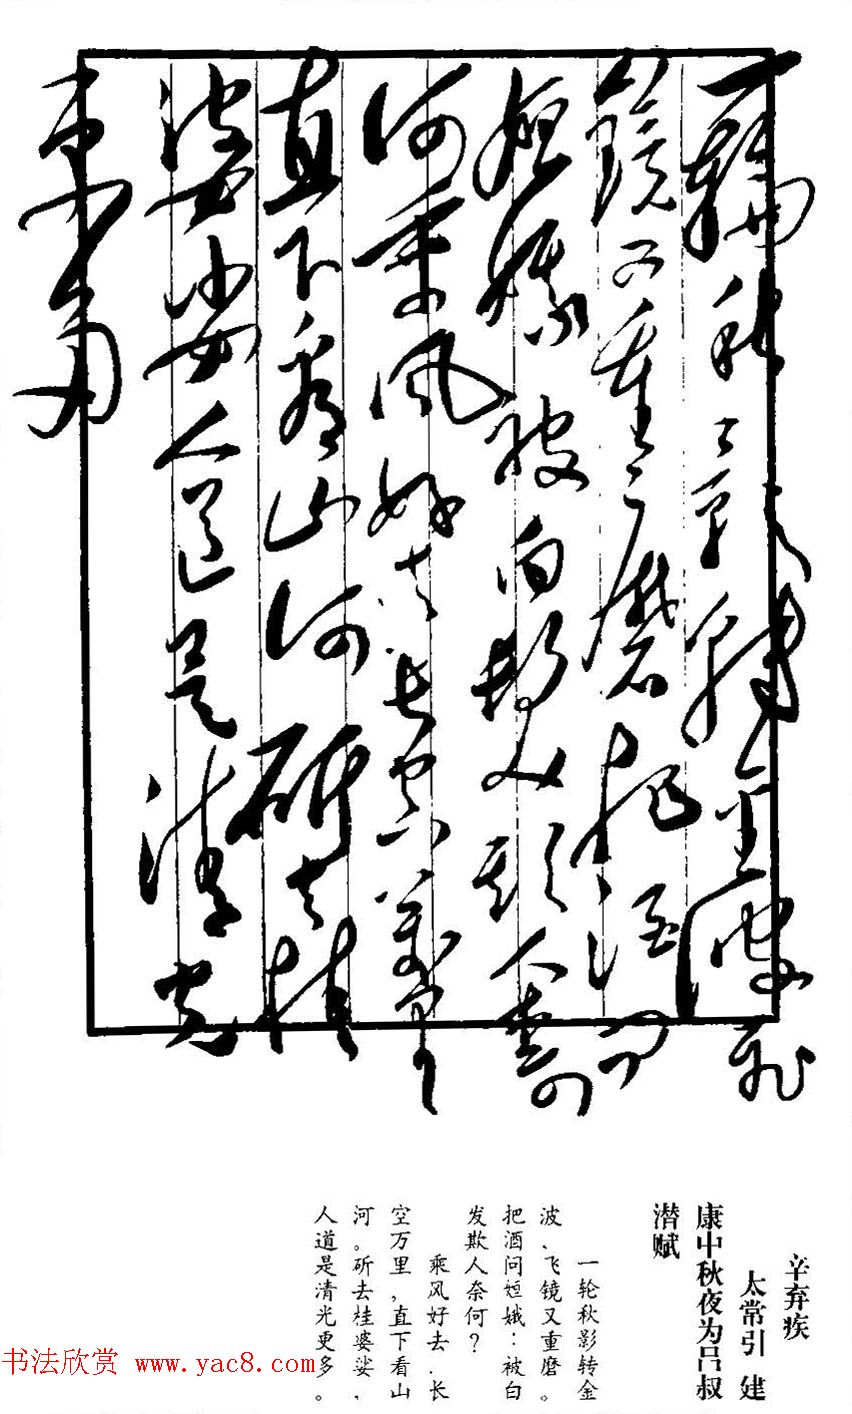 一輪秋影轉金波飛
鏡又重磨把酒問
姮娥被白髮欺人奈
何乘風好去長空萬里
直下看山河斫去桂
婆娑人道是清光
更多
辛弃疾
太常引 建
康中秋夜为吕叔
潜赋
一轮秋影转金
波、飞镜又重磨。
把酒问姮娥：被白
发欺人奈何？
乘风好去.长
空万里,直下看山
河。斫去桂婆娑,
人道是清光更多。
书法欣赏 www.yac8.com